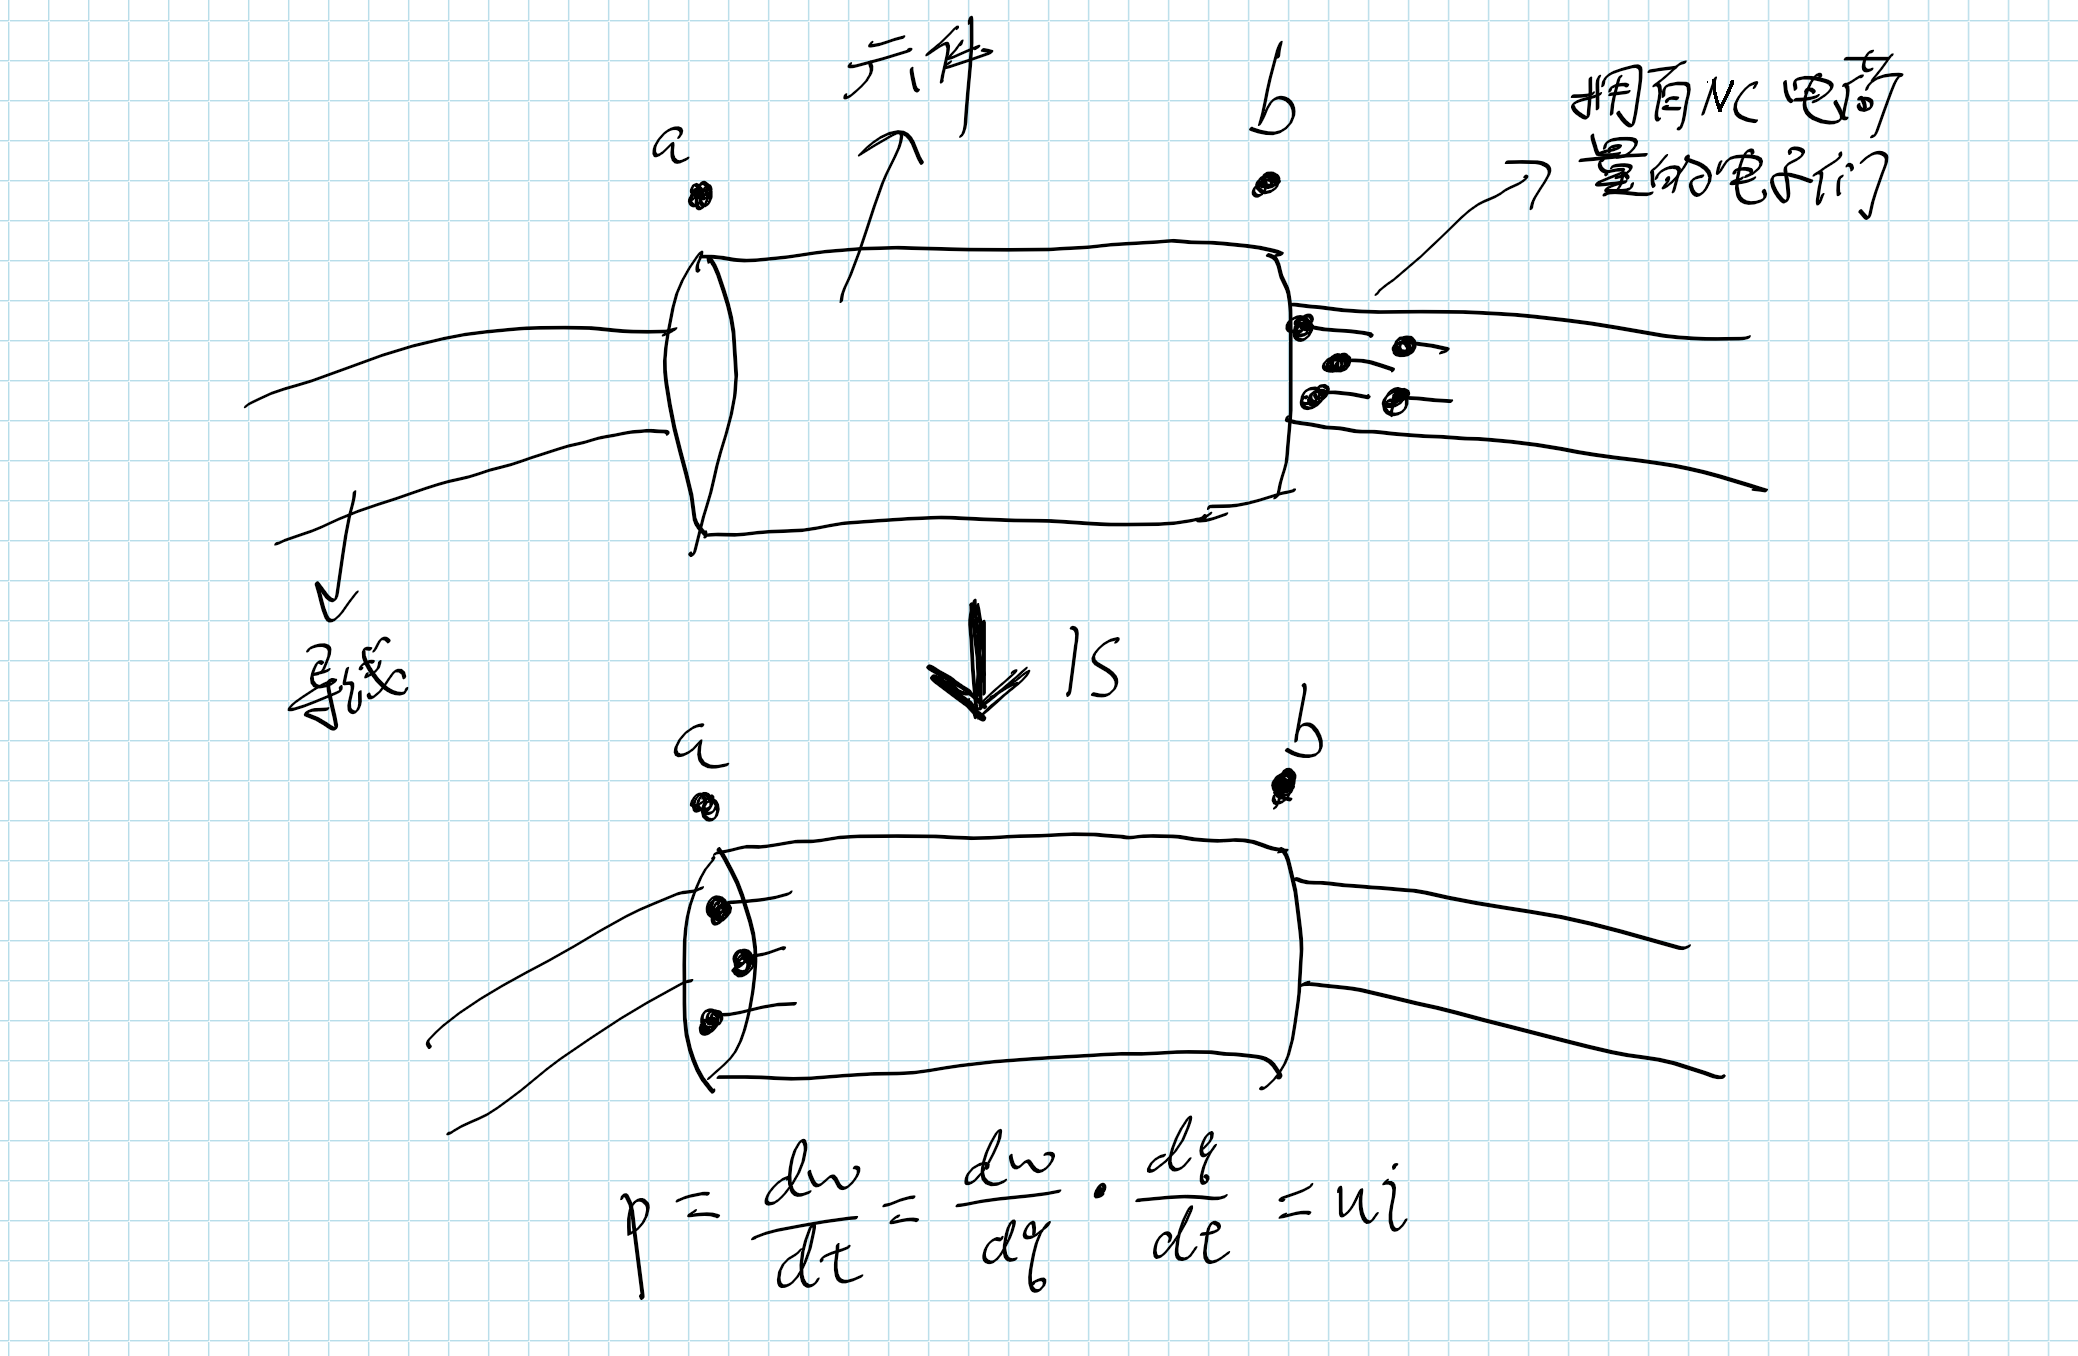 元件
a
b
拥有NC电荷
量的电子们
导线
1S
a
b
p = dw/dt = dw/dq · dq/dt = ui